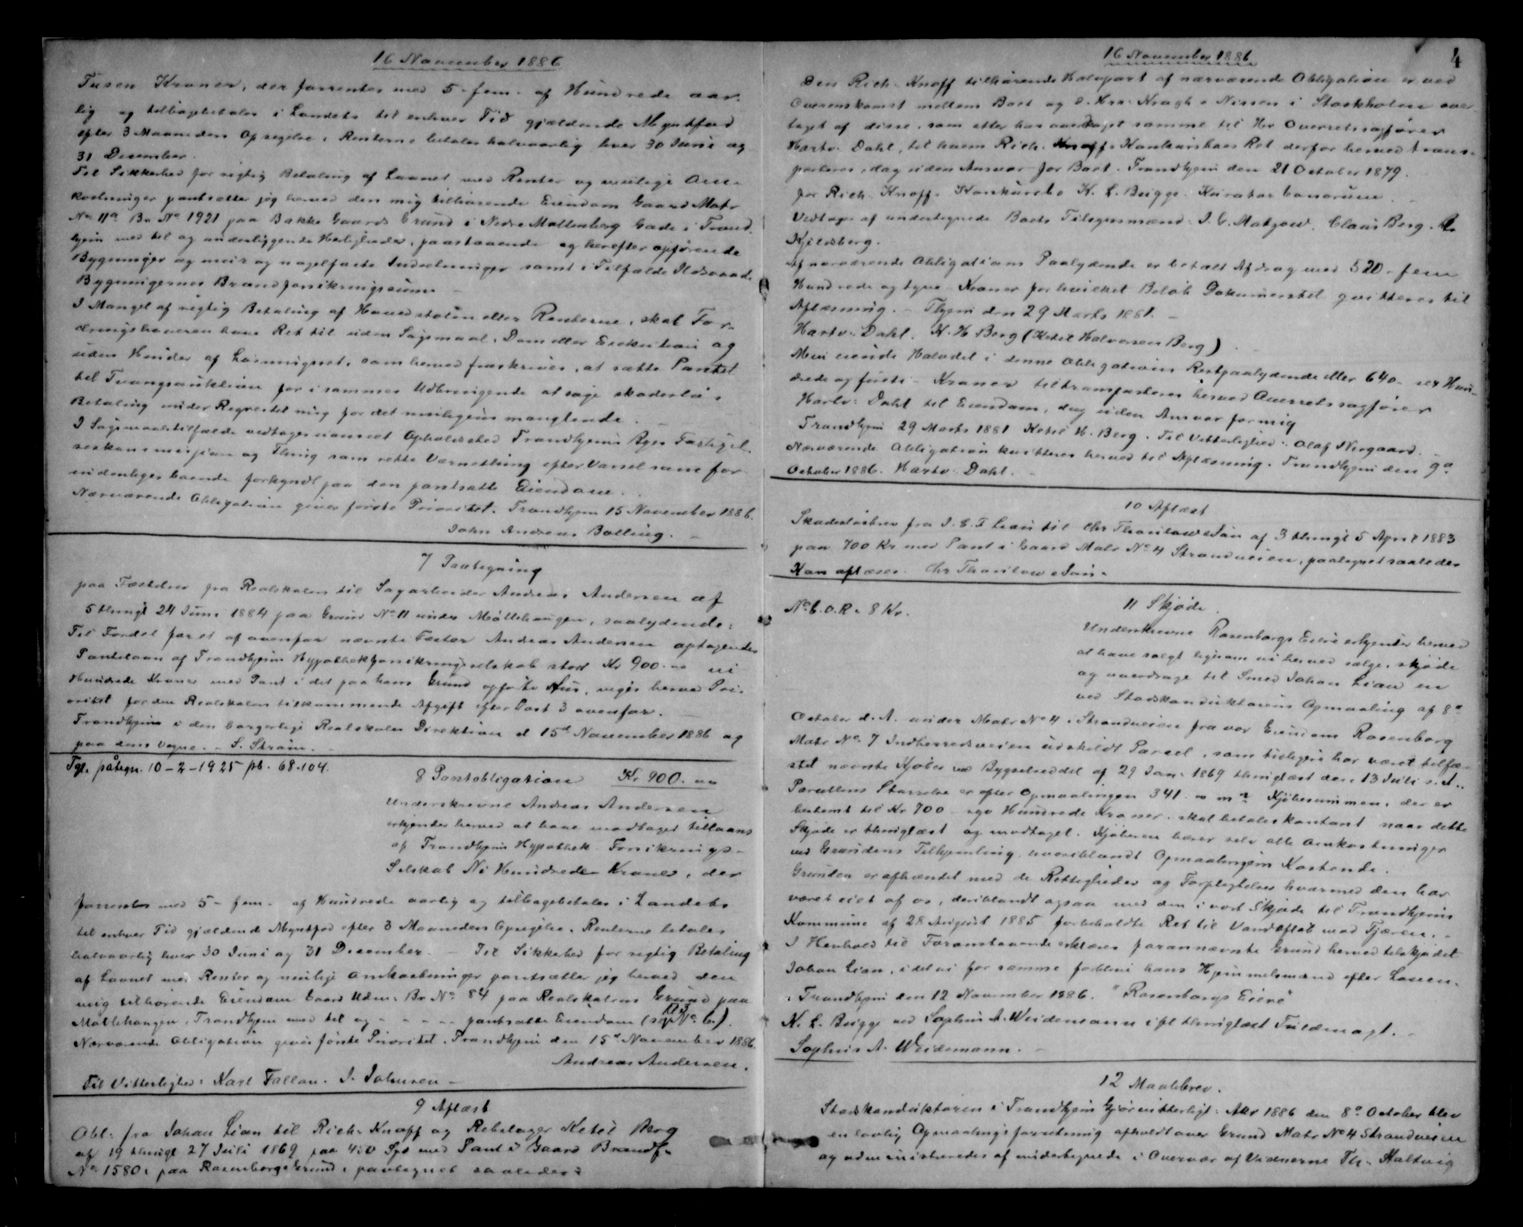 16 November 1886
Tusen Kroner, der forrentes med 5 - fem - af Hundrede aar-
lig og tilbagebetales i Landets til enhver Tid gjældende Myntfod
efter 3 Maaneders Opsigelse. Renterne betales halvaarlig hver 30 Juni og
31 December.
Til Sikkerhed for rigtig Betaling af Laanet med Renter og mulige Om-
kostninger pantsætter jeg herved den mig tilhørende Eiendom Gaard Matr
No 11a Br No 1921 paa Bakke Gaards Grund i Nedre Møllenberg Gade i Trond-
hjem med til og underliggende Herligheder, paastaaende og herefter opførende
Bygninger og mur og nagelfaste Indretninger samt i Tilfælde Ildsvaade
Bygningernes Brandforsikringssum -
I Mangel af rigtig Betaling af Hovedstolen eller Renterne, skal For-
dringshaveren have Ret til uden Søgsmaal, Dom eller Exekution og
uden Hinder af Lovens, som herved fraskrives, at sætte Pantet
til Tvangsauktion for i sammes Udbringende at søge skadesløs
Betaling under Regres til mig for det muligens manglende.
I Søgsmaalstilfælde vedtages uanseet Opholdssted Trondhjems Byes Forligel-
seskommission og Thing som rette Værnething efter Varsel som for
indenbyes boende forkyndt paa den pantsatte Eiendom.
Nærværende Obligation gives første Prioritet. Trondhjem 15 November 1886.
John Andreas Bolling. -
7 Paategning
paa Fæstebrev fra Realskolen til Sagarbeider Andreas Andersen af
5 thingl 24 Juni 1884 paa Grund No 11 under Møllehaugen, saalydende:
Til Fordel for et af ovenfor nævnte Fæster Andreas Andersen optagendes
Pantelaan af Trondhjems Hypothekforsikringsselskab stort Kr 900.00 ni
Hundrede Kroner med Pant i det paa hans Grund opførte Hus, viges herved Pri-
oritet for den Realskolen tilkommende Afgift efter Post 3 ovenfor.
Trondhjem i den borgerlige Realskoles Direktion d 15d November 1886 og
paa dens Vegne. - S. Strøm.
Tgl. påtegn. 10-2-1925 pb. 68.104.
8 Pantobligation Kr. 900.00
Underskrevne Andreas Andersen
erkjender herved at have modtaget tillaans
af Trondhjems Hypothek Forsikrings-
Selskab Ni Hundrede Kroner, der
forrentes med 5 - fem - af Hundrede aarlig og tilbagebetales i Landets
til enhver Tid gjældende Myntfod efter 3 Maaneders Opsigelse. Renterne betales
halvaarlig hver 30 Juni og 31 December. - Til Sikkerhed for rigtig Betaling
af Laanet med Renter og mulige Omkostninger pantsætter jeg herved den
mig tilhørende Eiendom Gaard Br No 84 paa Realskolens Grund paa
Møllehaugen, Trondhjem med til og - - - - pantsatte Eiendom (
Nærværende Obligation gives første Prioritet. Trondhjem den 15d November 1886.
Andreas Andersen.
Til Vitterlighed: Karl Fallan. J. Johnsen -
9 Aflæst
Obl. fra Johan Lian til Rich. Knoff og Rebslager Ketil Berg
af 19 thingl 27 Juli 1869 paa 450 Spd med Pant i Gaard Brandf.
No 1580 paa Rosenborgs Grund, paategnet saaledes:
16 November 1886
4
Den Rich. Knoff tilhørende Halvpart af nærværende Obligation er ved
Overenskomst mellem Boet og d'Hrr. Kragh & Nissen i Stockholm over-
taget af disse, som atter har overdraget samme til Hr Overretssagfører
Hartv. Dahl, til hvem Rich. Knoffs Konkursboes Ret derfor herved trans-
porteres, dog uden Ansvar for Boet. Trondhjem den 21 October 1879.
for Rich. Knoffs Konkursbo K. L. Bugge. Kurator bonorum.
Vedtages af undertegnede Boets Tilsynsmænd. J. C. Matzow. Claus Berg.
Kjeldsberg.
Af nærværende Obligations Paalydende er betalt Afdrag med 520 - fem
Hundrede og tyve - Kroner for hvilket Beløb Dokumentet qvitteres til
Aflæsning. - Thjem den 29 Marts 1881. -
Hartv. Dahl. K. H Berg (Ketil Halvorsen Berg)
Min eiende Halvdel i denne Obligations Restpaalydende eller 640 - sex Hun-
drede og førti - Kroner tiltransporteres herved Overretssagfører
Hartv. Dahl til Eiendom, dog uden Ansvar for mig
Trondhjem 29 Marts 1881 Ketil H. Berg. Til Vitterlighed: Olaf Nergaard. -
Nærværende Obligation kvitteres herved til Aflæsning. Trondhjem den 9d
October 1886. Hartv. Dahl. -
10 Aflæst
Skadesløsbrev fra J. E. T Lian til Chr Thaulow & Søn af 3 thingl 5 April 1883
paa 700 Kr med Pant i Gaard Matr No 4 Strandveien, paategnet saaledes
Kan aflæses. Chr Thaulow & Søn.
No 6. o. R. 8 Kr.
11 Skjøde.
Underskrevne Rosenborgs Eiere erkjender herved
at have solgt ligesom vi herved sælge, skjøde
og overdrage til Smed Johan Lian en
ved Stadskonduktørens Opmaaling af 8d
October d. A. under Matr No 4 i Strandveien fra vor Eiendom Rosenborg
Matr No 7 Indherredsveien udskildt Parcel, som tidligere har været tilfæ-
stet nævnte Kjøber ved Bygselseddel af 29 Jan. 1869 thinglæst den 13 Juli s. A..
Parcellens Størrelse er efter Opmaalingen 341.0 m2. Kjøbesummen, der er
bestemt til Kr 700 - syv Hundrede Kroner - skal betales kontant naar dette
Skjøde er thinglæst og modtaget. Kjøberen bærer selv alle Omkostninger
ved Grundens Tilhjemling, hvoriblandt Opmaalingens Kostende.
Grunden er afhændet med de Rettigheder og Forpligtelser hvormed den har
været eiet af os, deriblandt ogsaa med den i vort Skjøde til Trondhjems
Kommune af 28 August 1885 forbeholdte Ret til Vandafløb mod Fjæren. -
I Henhold til Foranstaaende skjøtes forannævnte Grund herved tilskjødet
Johan Lian, idet vi for samme forblive hans Hjemmelsmænd efter Loven.
Trondhjem den 12 November 1886. "Rosenborgs Eiere"
K. L. Bugge ved Sophus A. Weidemann ifl thinglæst Fuldmagt. -
Sophus A. Weidemann. -
12 Maalebrev.
Stadskonduktøren i Trondhjem Gjør vitterligt: Aar 1886 den 8d October blev
en lovlig Opmaalingsforretning afholdt over Grund Matr No 4 Strandveien
og administreredes af undertegnede i Overvær af Vidnerne Th. Haltvig